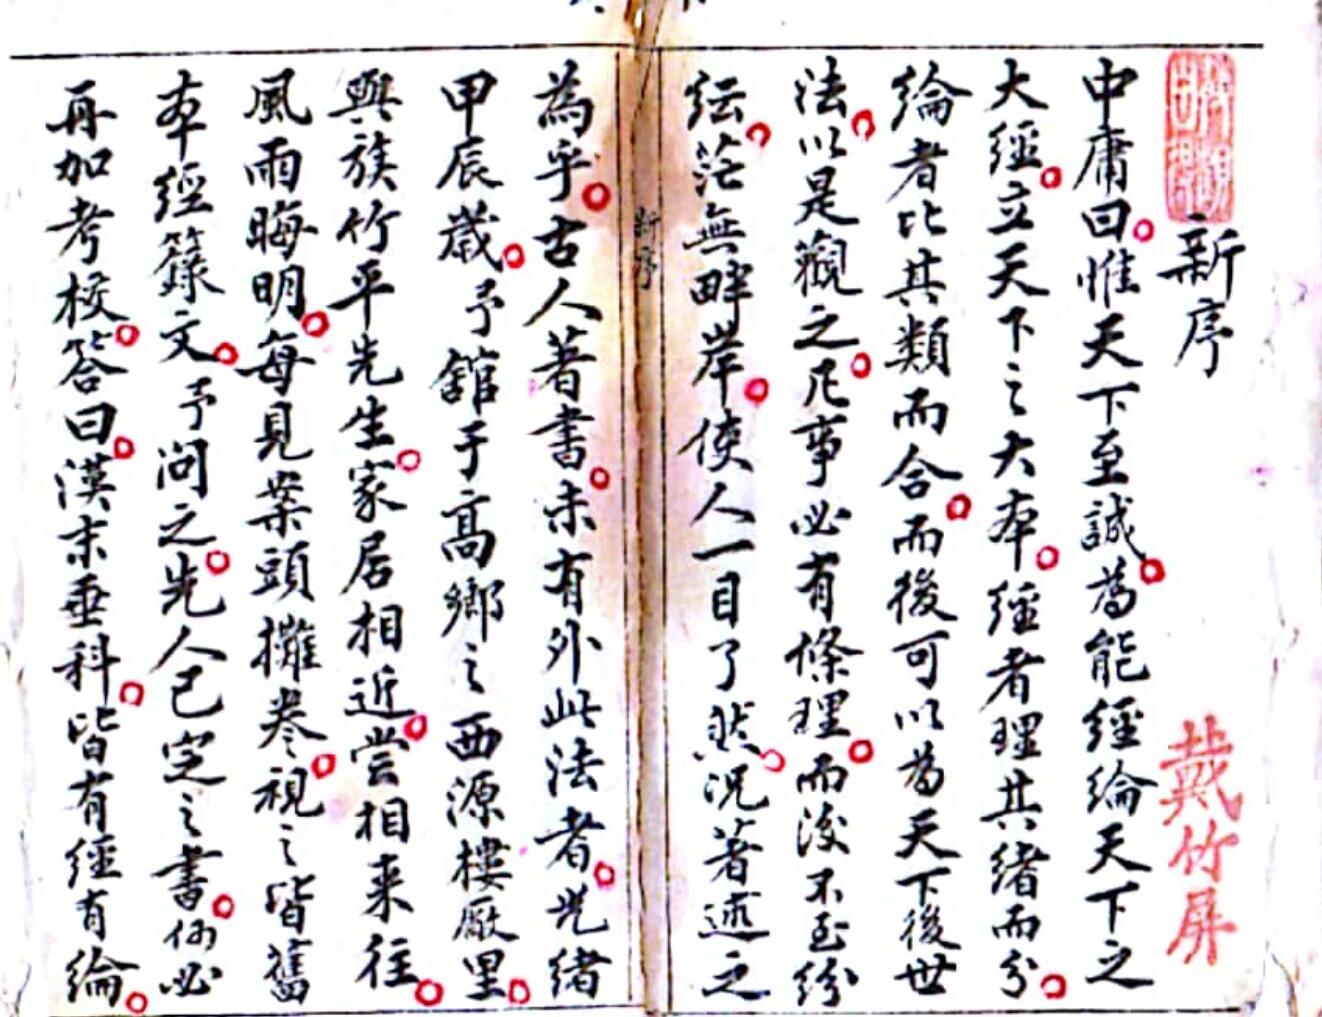 新序
戴竹屏
中庸曰惟天下至誠為能經綸天下之
大經立天下之大本經者理其緒而分
綸者比其類而合而後可以為天下後世
法以是觀之凡事必有條理而後不至紛
紜茫無畔岸使人一目了然況著述之
為乎古人著書未有外此法者光緒
甲辰歲予館于高鄉之西源樓厰里
與族竹平先生家居相近嘗相来往
風雨晦明每見案頭攤卷視之皆舊
本經籙文予問之先人已定之書何必
再加考校答曰漢末垂科皆有經有綸
新序